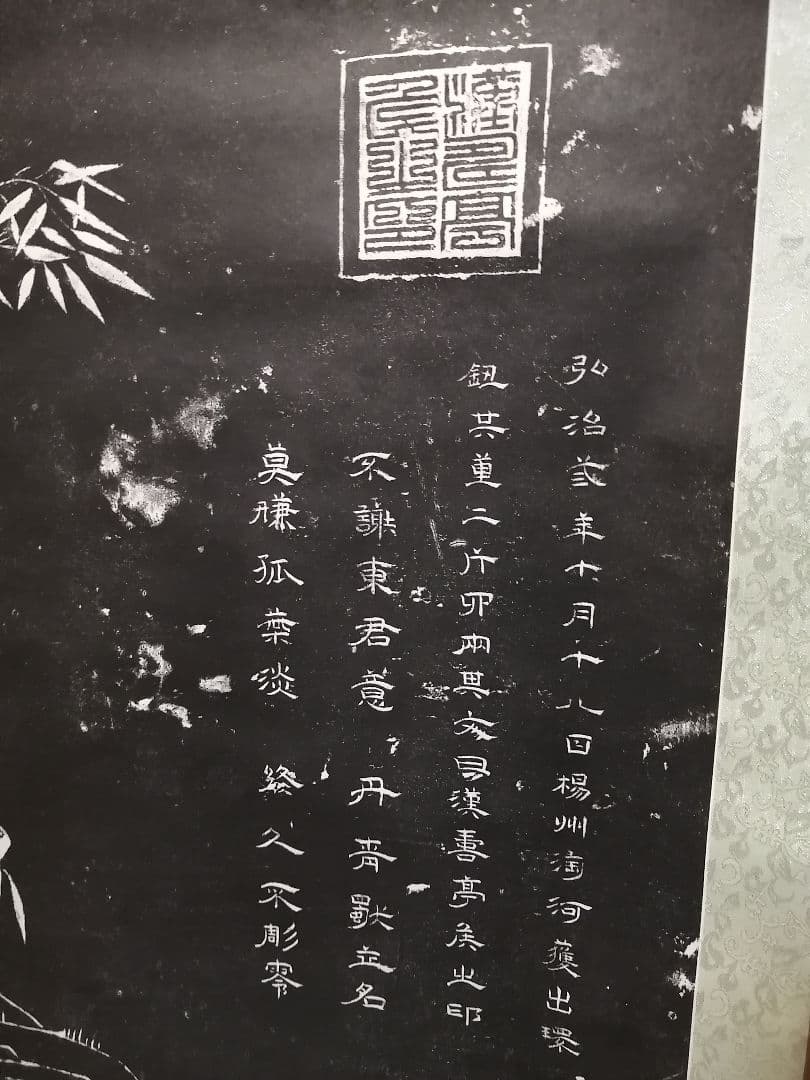 漢壽亭
侯之印
弘治弍年六月十八日楊州淘河獲出環
鈕其重二斤四兩其文曰漢壽亭侯之印
不謝東君意 丹青獨立名
莫嫌孤葉淡 終久不彫零